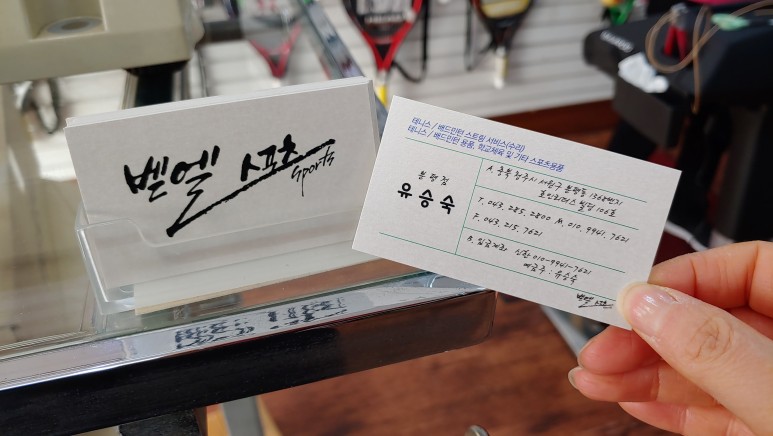 벧엘 스포츠
sports
테니스 / 배드민턴 스트링 서비스(수리)
테니스 / 배드민턴 용품, 학교체육 및 기타 스포츠용품
분평점
유승숙
A. 충북 청주시 서원구 분평동 1368번지
빌딩 106호
T. 043. 285. 2800 M. 010. 9941. 7621
F. 043. 215. 7621
B. 입금계좌 신한 010-9941-7621
예금주 : 유승숙
벧엘 스포츠